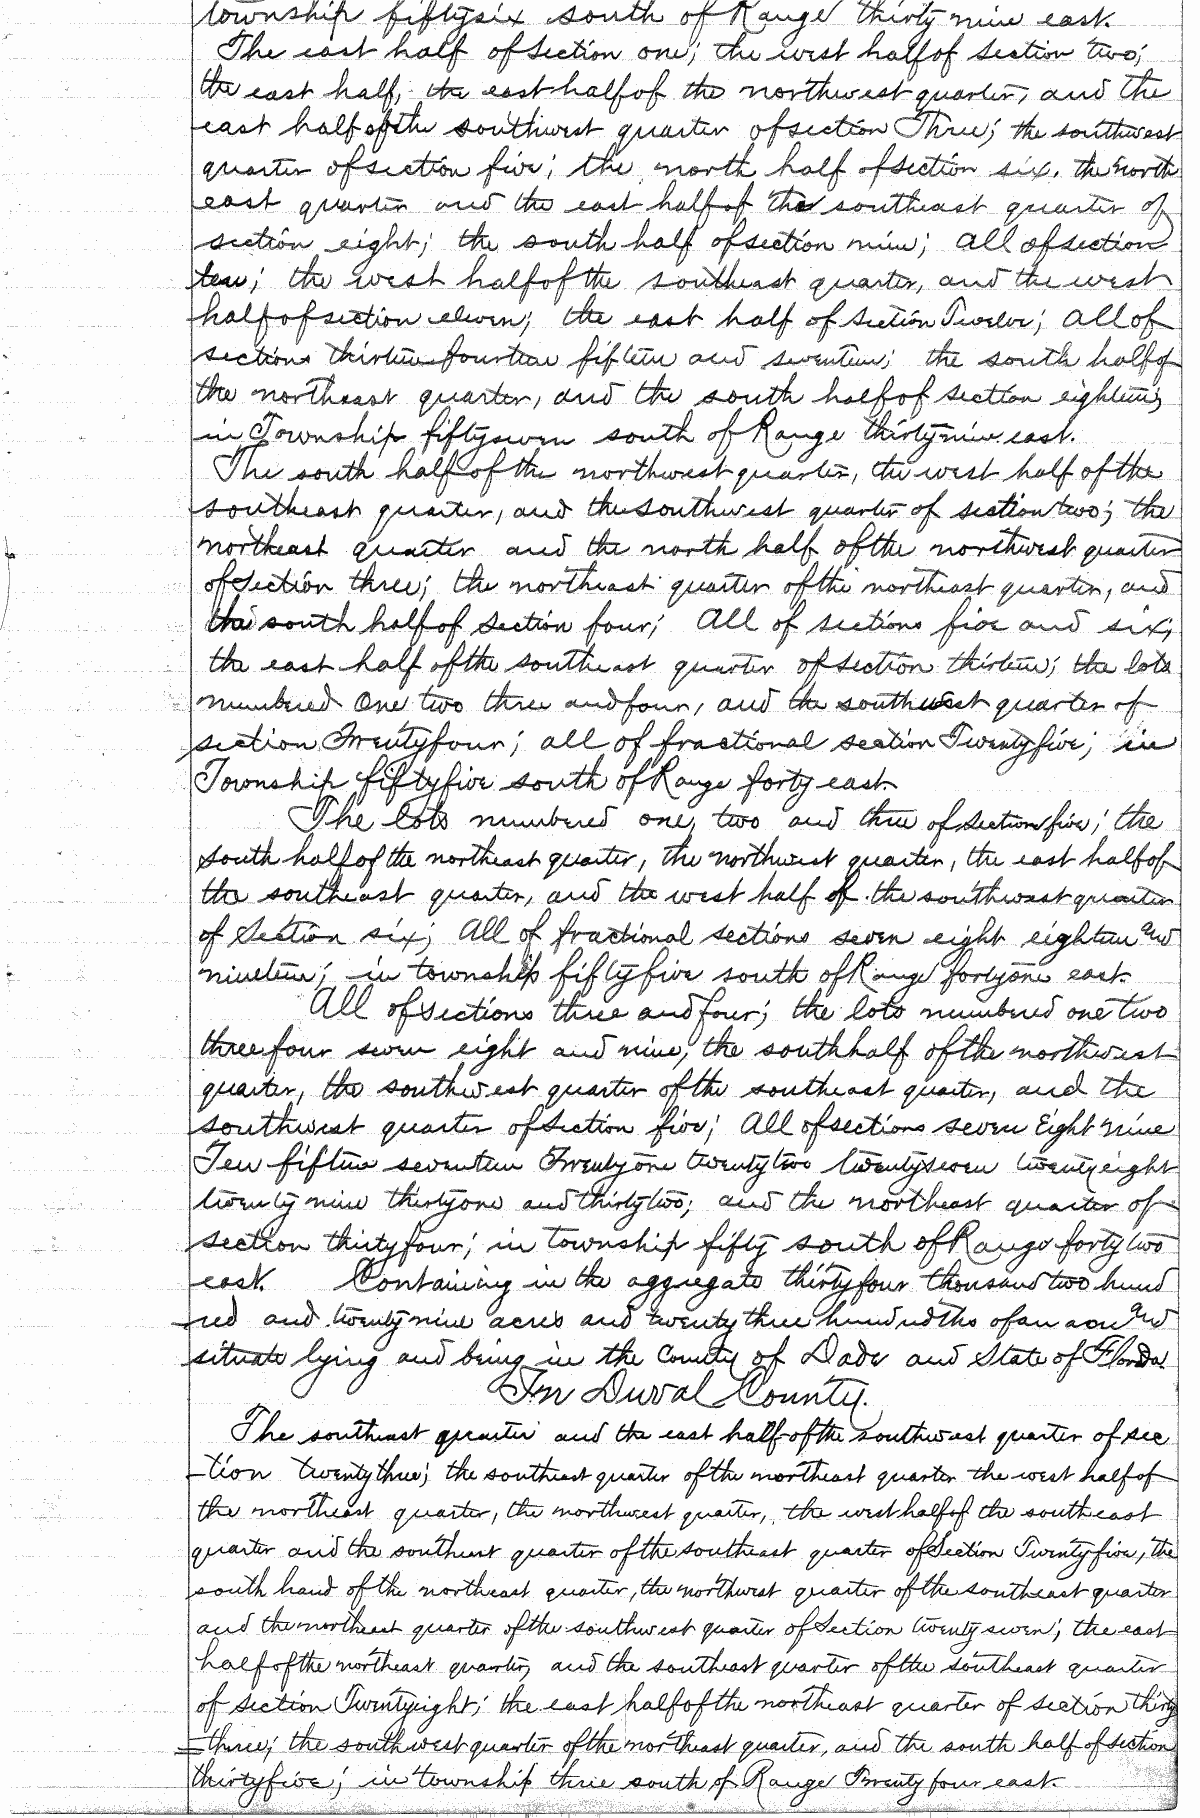 township fiftysix south of Range thirty nine east.
The east half of Section one; the west half of section two;
the east half, the east half of the northwest quarter, and the
east half of the southwest quarter of section Three; the southwest
quarter of section five; the north half of section six. the north
east quarter and the east half of the southeast quarter of
section eight; the south half of section nine; all of section
ten; the west half of the southeast quarter, and the west
half of section eleven; the east half of Section Twelve; all of
sections thirteen fourteen fifteen and seventeen; the south half of
the northeast quarter, and the south half of section eighteen;
in Township fiftyseven south of Range thirtynine east.
The south half of the northwest quarter, the west half of the
southeast quarter, and the southwest quarter of section two; the
northeast quarter and the north half of the northwest quarter
of Section three; the northeast quarter of the northeast quarter, and
the south half of Section four; All of sections five and six;
the east half of the southeast quarter of section thirteen; the lots
numbered One two three and four, and the southwest quarter of
section Twentyfour; all of fractional section Twentyfive; in
Township fiftyfive south of Range forty east.
The lots numbered one, two and three of Section five; the
south half of the northeast quarter, the northwest quarter, the east half of
the southeast quarter, and the west half of the southwest quarter
of Section six; All of fractional sections seven eight eighteen and
nineteen; in township fiftyfive south of Range fortyone east.
All of sections three and four; the lots numbered one two
three four seven eight and nine, the south half of the northwest
quarter, the southwest quarter of the southeast quarter, and the
southwest quarter of section five; All of sections seven Eight nine
Ten fifteen seventeen Twenty one twenty two twentyseven twenty eight
twenty nine thirtyone and thirtytwo; and the northeast quarter of
section thirtyfour; in township fifty south of Range forty two
east. Containing in the aggregate thirtyfour thousand two hund
red and twentynine acres and twenty three hundredths of an acre and
situate lying and being in the County of Dade and State of Florida.
In Duval County.
The southeast quarter and the east half of the southwest quarter of sec
tion twentythree; the southeast quarter of the northeast quarter the west half of
the northeast quarter, the northwest quarter, the west half of the southeast
quarter and the southeast quarter of the southeast quarter of Section Twentyfive, the
south hand of the northeast quarter, the northwest quarter of the southeast quarter
and the northeast quarter of the southwest quarter of Section twenty seven; the east
half of the northeast quarter, and the southeast quarter of the southeast quarter
of section Twentyeight; the east half of the northeast quarter of section thirty
three; the southwest quarter of the northeast quarter, and the south half of section
thirtyfive; in township three south of Range Twenty four east.